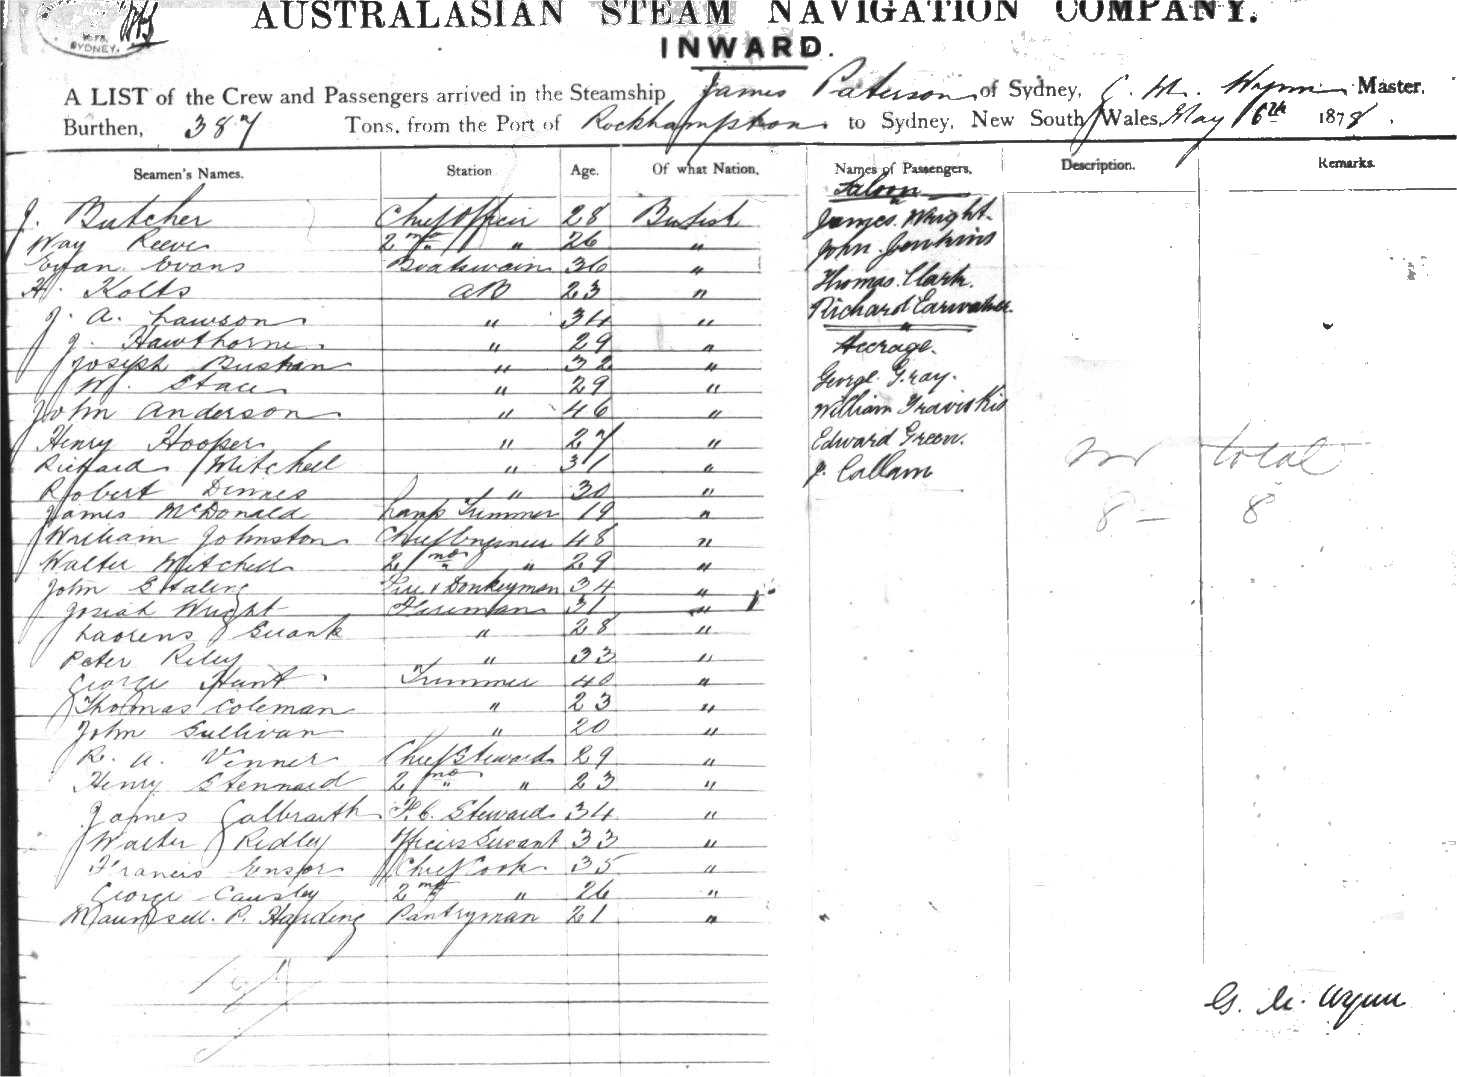 SYDNEY.
AUSTRALASIAN STEAM NAVIGATION COMPANY.
INWARD.
A LIST of the Crew and Passengers arrived in the Steamship James Paterson of Sydney, Wynn Master,
Burthen, 387 Tons, from the Port of Rockhampton to Sydney, New South Wales, May 6th 1878.
Seamen's Names. Station Age. Of what Nation. Names of Passengers. Description. Remarks.
Saloon
J. Butcher Chief Officer 28 British James Wright.
Way Reeve 2nd " 26 " John Jenkins
Evan Evans Boatswain 36 " Thomas Clark.
H. Kolts AB 23 " Richard Earwaker.
J. A. Lawson " 34 "
J. Hawthorne " 29 " Steerage.
Joseph " 32 "
W. Stace " 29 " George Gray.
John Anderson " 46 " William
Henry Hooper " 27 " Edward Green.
Richard Mitchell " 31 " J. Callam
total
Robert " 30 "
8 — 8
James McDonald Lamp Trimmer 19 "
William Johnston Chief Engineer 48 "
Walter Mitchell 2nd " 29 "
John Fire & Donkeyman 34 "
Josiah Wright Fireman 31 "
" 28 "
Peter Riley " 33 "
George Hunt Trimmer 40 "
Thomas Coleman " 23 "
John Sullivan " 20 "
R. A. Venner Chief Steward 29 "
Henry Stennard 2nd " 23 "
James Galbraith F.C. Steward 34 "
Walter Ridley Officers Servant 33 "
Francis Ensor Chief Cook 35 "
George Causley 2nd " 26 "
Maunsell. P. Harding Pantryman 21 "
Wynn